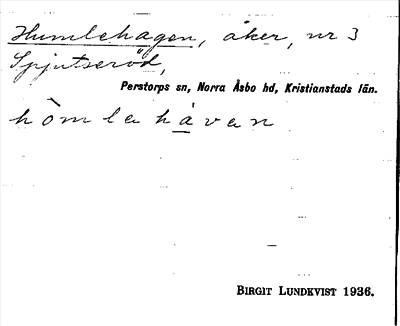 Humlehagen, åker, nr 3
Spjutseröd,
Perstorps sn, Norra Åsbo hd, Kristianstads län.
hòmlehàvan
BIRGIT LUNDKVIST 1936.